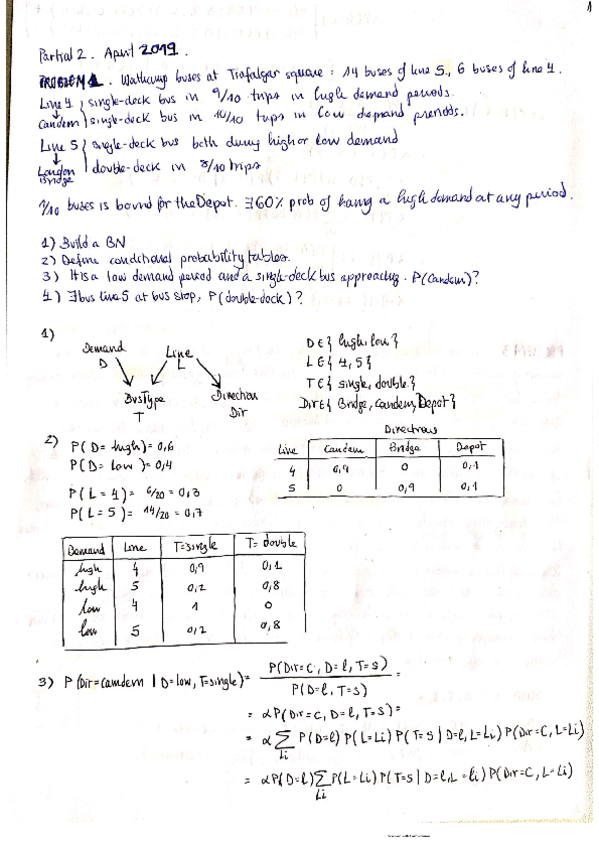 1
Partial 2. April 2019.
PROBLEM 1. Waiting buses at Trafalgar square: 14 buses of line 5., 6 buses of line 4.
Line 4 { single-deck bus in 9/10 trips in high demand periods.
↓
Candem { single-deck bus in 10/10 trips in low demand periods.
Line 5 { single-deck bus both during high or low demand
↓
London Bridge { double-deck in 8/10 trips
1/10 buses is bound for the Depot. ∃ 60% prob of having a high demand at any period.
1) Build a BN
2) Define conditional probability tables.
3) It is a low demand period and a single-deck bus approaching. P(Candem)?
4) ∃ bus line 5 at bus stop, P(double-deck)?
1)
Demand D Line L
BusType T Direction Dir
D ∈ { high, low }
L ∈ { 4, 5 }
T ∈ { single, double }
Dir ∈ { Bridge, Candem, Depot }
2) P(D = high) = 0,6
P(D = low) = 0,4
P(L = 4) = 6/20 = 0,3
P(L = 5) = 14/20 = 0,7
Directions
Line Candem Bridge Depot
4 0,9 0 0,1
5 0 0,9 0,1
Demand Line T=single T= double
high 4 0,9 0,1
high 5 0,2 0,8
low 4 1 0
low 5 0,2 0,8
3) P(Dir=camdem | D=low, T=single) = P(Dir=C, D=l, T=s) / P(D=l, T=s) =
= α P(Dir=C, D=l, T=s) =
= α Σ_Li P(D=l) P(L=Li) P(T=s | D=l, L=Li) P(Dir=C, L=Li)
= α P(D=l) Σ_Li P(L=Li) P(T=s | D=l, L=li) P(Dir=C, L=Li)